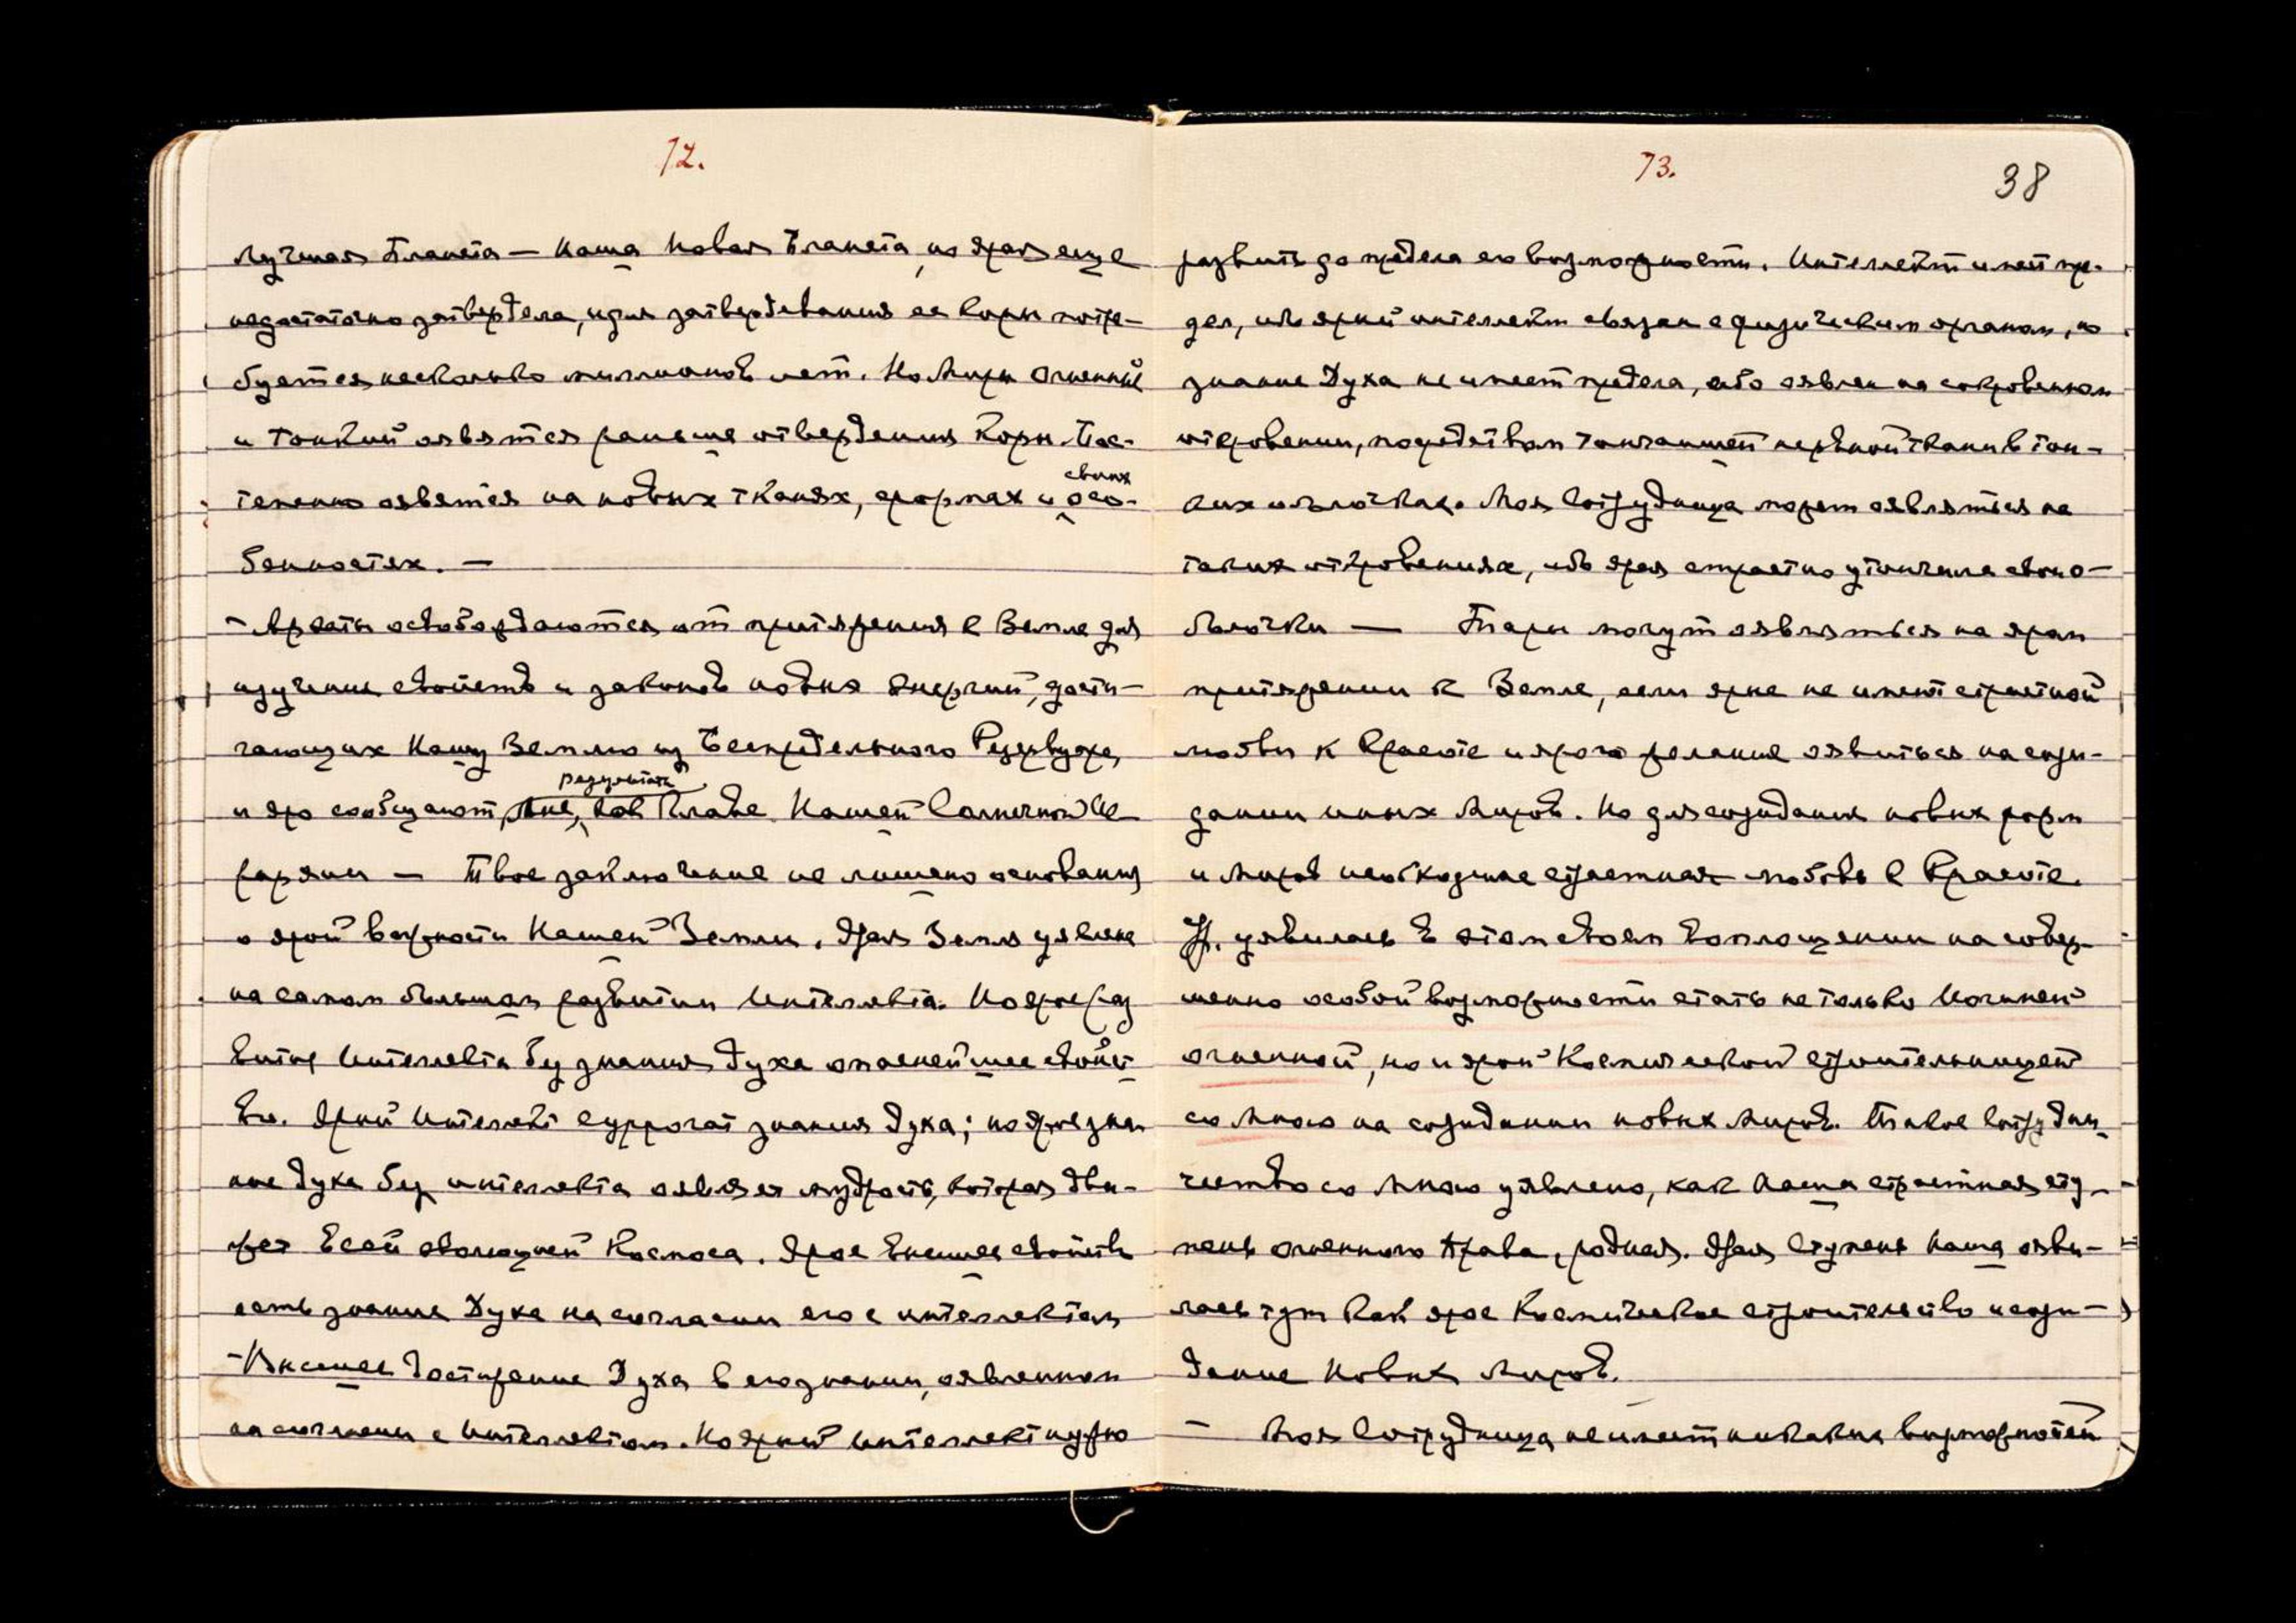 72.
Лучшая Планета — Наша Новая Планета, но ярая еще
недостаточно затвердела, и для затвердевания ее коры потре-
буется несколько миллионов лет. Но Миры Огненный
и Тонкий явятся раньше отвердения Коры. Пос-
тепенно явятся на новых тканях, формах и своих осо-
бенностях. —
- Архаты освобождаются от притяжения к Земле для
изучение свойств и законов новых Энергий, дости-
гающих Нашу Землю из Беспредельного Резервуара,
и яро сообщают результаты Главе Нашей Солнечной Ие
рархии — Твое заключение не лишено основания
о ярой важности Нашей Земли. Ярая Земля уявлена
на самом большом развитии Интеллекта. Но ярое раз
витие Интеллекта без знания Духа опаснейшее свойст
во. Ярый Интеллект суррогат знания Духа; но ярое зна
ние Духа без интеллекта являет мудрость, которая дви-
жет всей эволюцией Космоса. Ярое Высшее свойство
есть знание Духа на сочетании его с интеллектом
- Высшее Достижение Духа в его знании, явленном
на сочетании с Интеллектом. Но ярый Интеллект нужно
73.
38
развить до предела его возможности. Интеллект имеет пре-
дел, ибо ярый интеллект связан с физическим органом, но
знание Духа не имеет предела, ибо явлен на сокровенном
откровении, посредством тончайшей нервной ткани в тон-
ких оболочках. Моя Сотрудница может являться на
таких откровениях, ибо ярая страстно утончила свои о-
болочки — Пары могут являться на яром
притяжении к Земле, если ярые не имеют страстной
любви к Красоте и ярого желания явиться на сози-
дании иных Миров. Но для созидания новых форм
и Миров необходима страстная любовь к Красоте.
У. уявилась в этом своем воплощении на совер-
шенно особой возможности стать не только Йогиней
огненной, но и ярой Космической строительницей
со Мною на созидании новых Миров. Такое Сотрудни
чество со Мною уявлено, как Наша страстная сту-
пень огненного Права, родная. Ярая Ступень Наша яви-
лась тут как ярое Космическое строительство и сози-
дание Новых Миров.
— Моя Сотрудница не имеет никаких возможностей